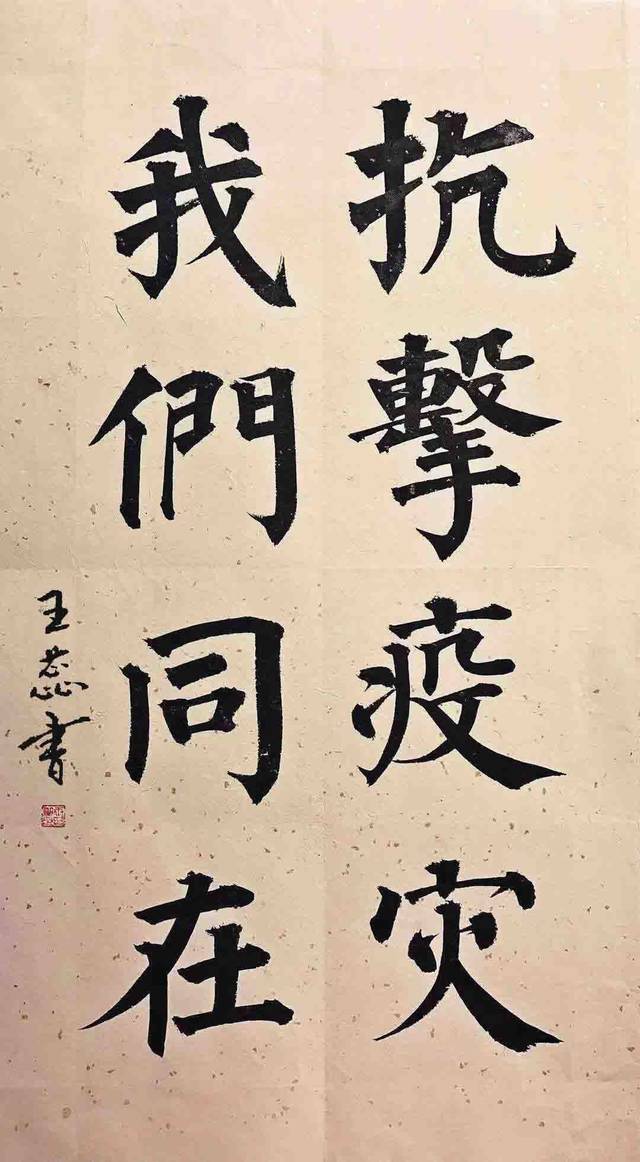 抗擊疫灾
我們同在
王蕊書